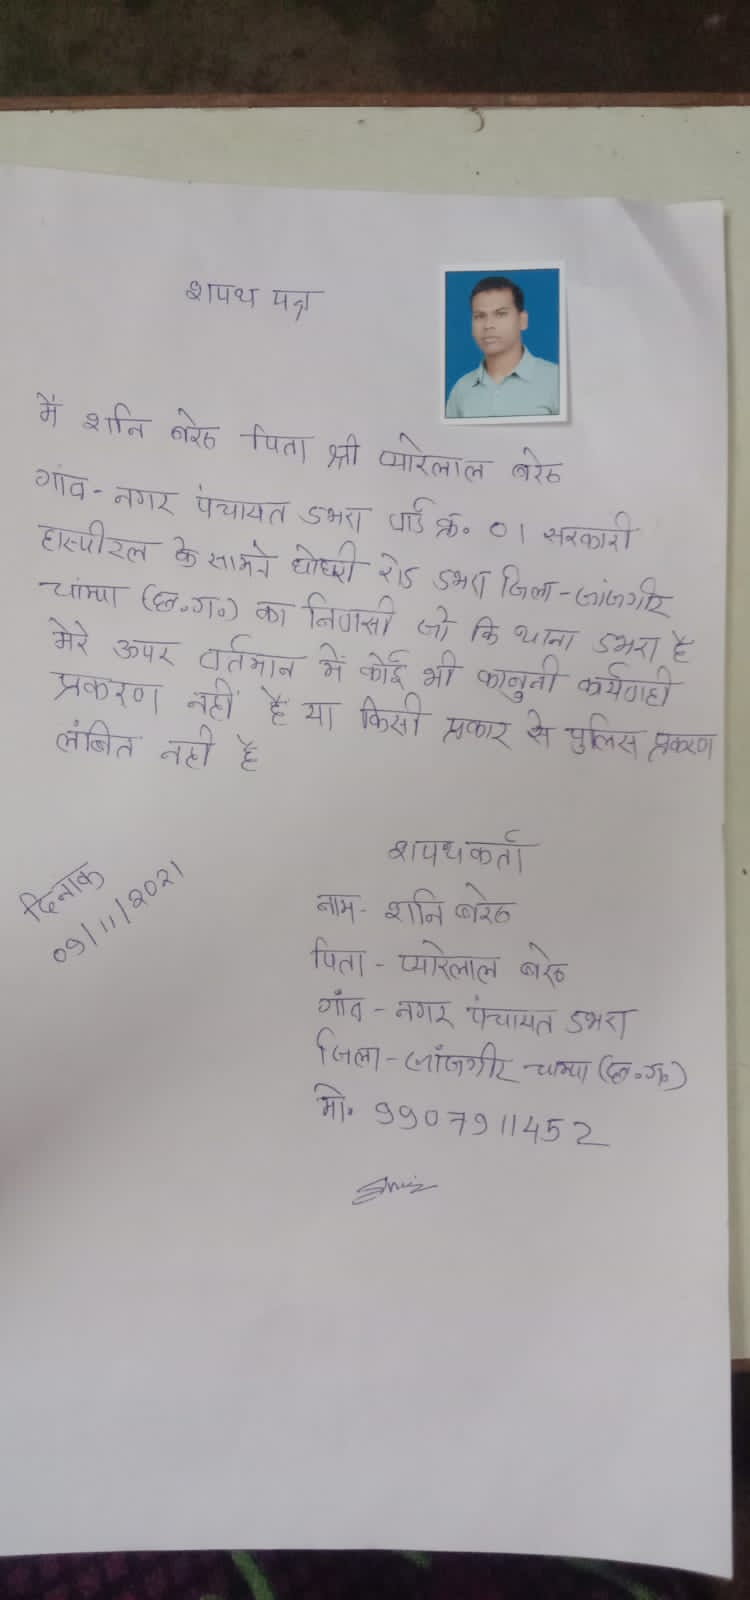 शपथ पत्र
मैं शनि बरेठ पिता श्री प्यारेलाल बरेठ
गांव - नगर पंचायत डभरा वार्ड क्र. 01 सरकारी
हास्पीटल के सामने घोघरी रोड डभरा जिला - जांजगीर
चांम्पा (छ.ग.) का निवासी जो कि थाना डभरा है
मेरे ऊपर वर्तमान में कोई भी कानुनी कार्यवाही
प्रकरण नहीं है या किसी प्रकार से पुलिस प्रकरण
लंबित नही है
शपथकर्ता
दिनांक
09/11/2021
नाम - शनि बरेठ
पिता - प्यारेलाल बरेठ
गांव - नगर पंचायत डभरा
जिला - जांजगीर चाम्पा (छ.ग.)
मो. 9907911452